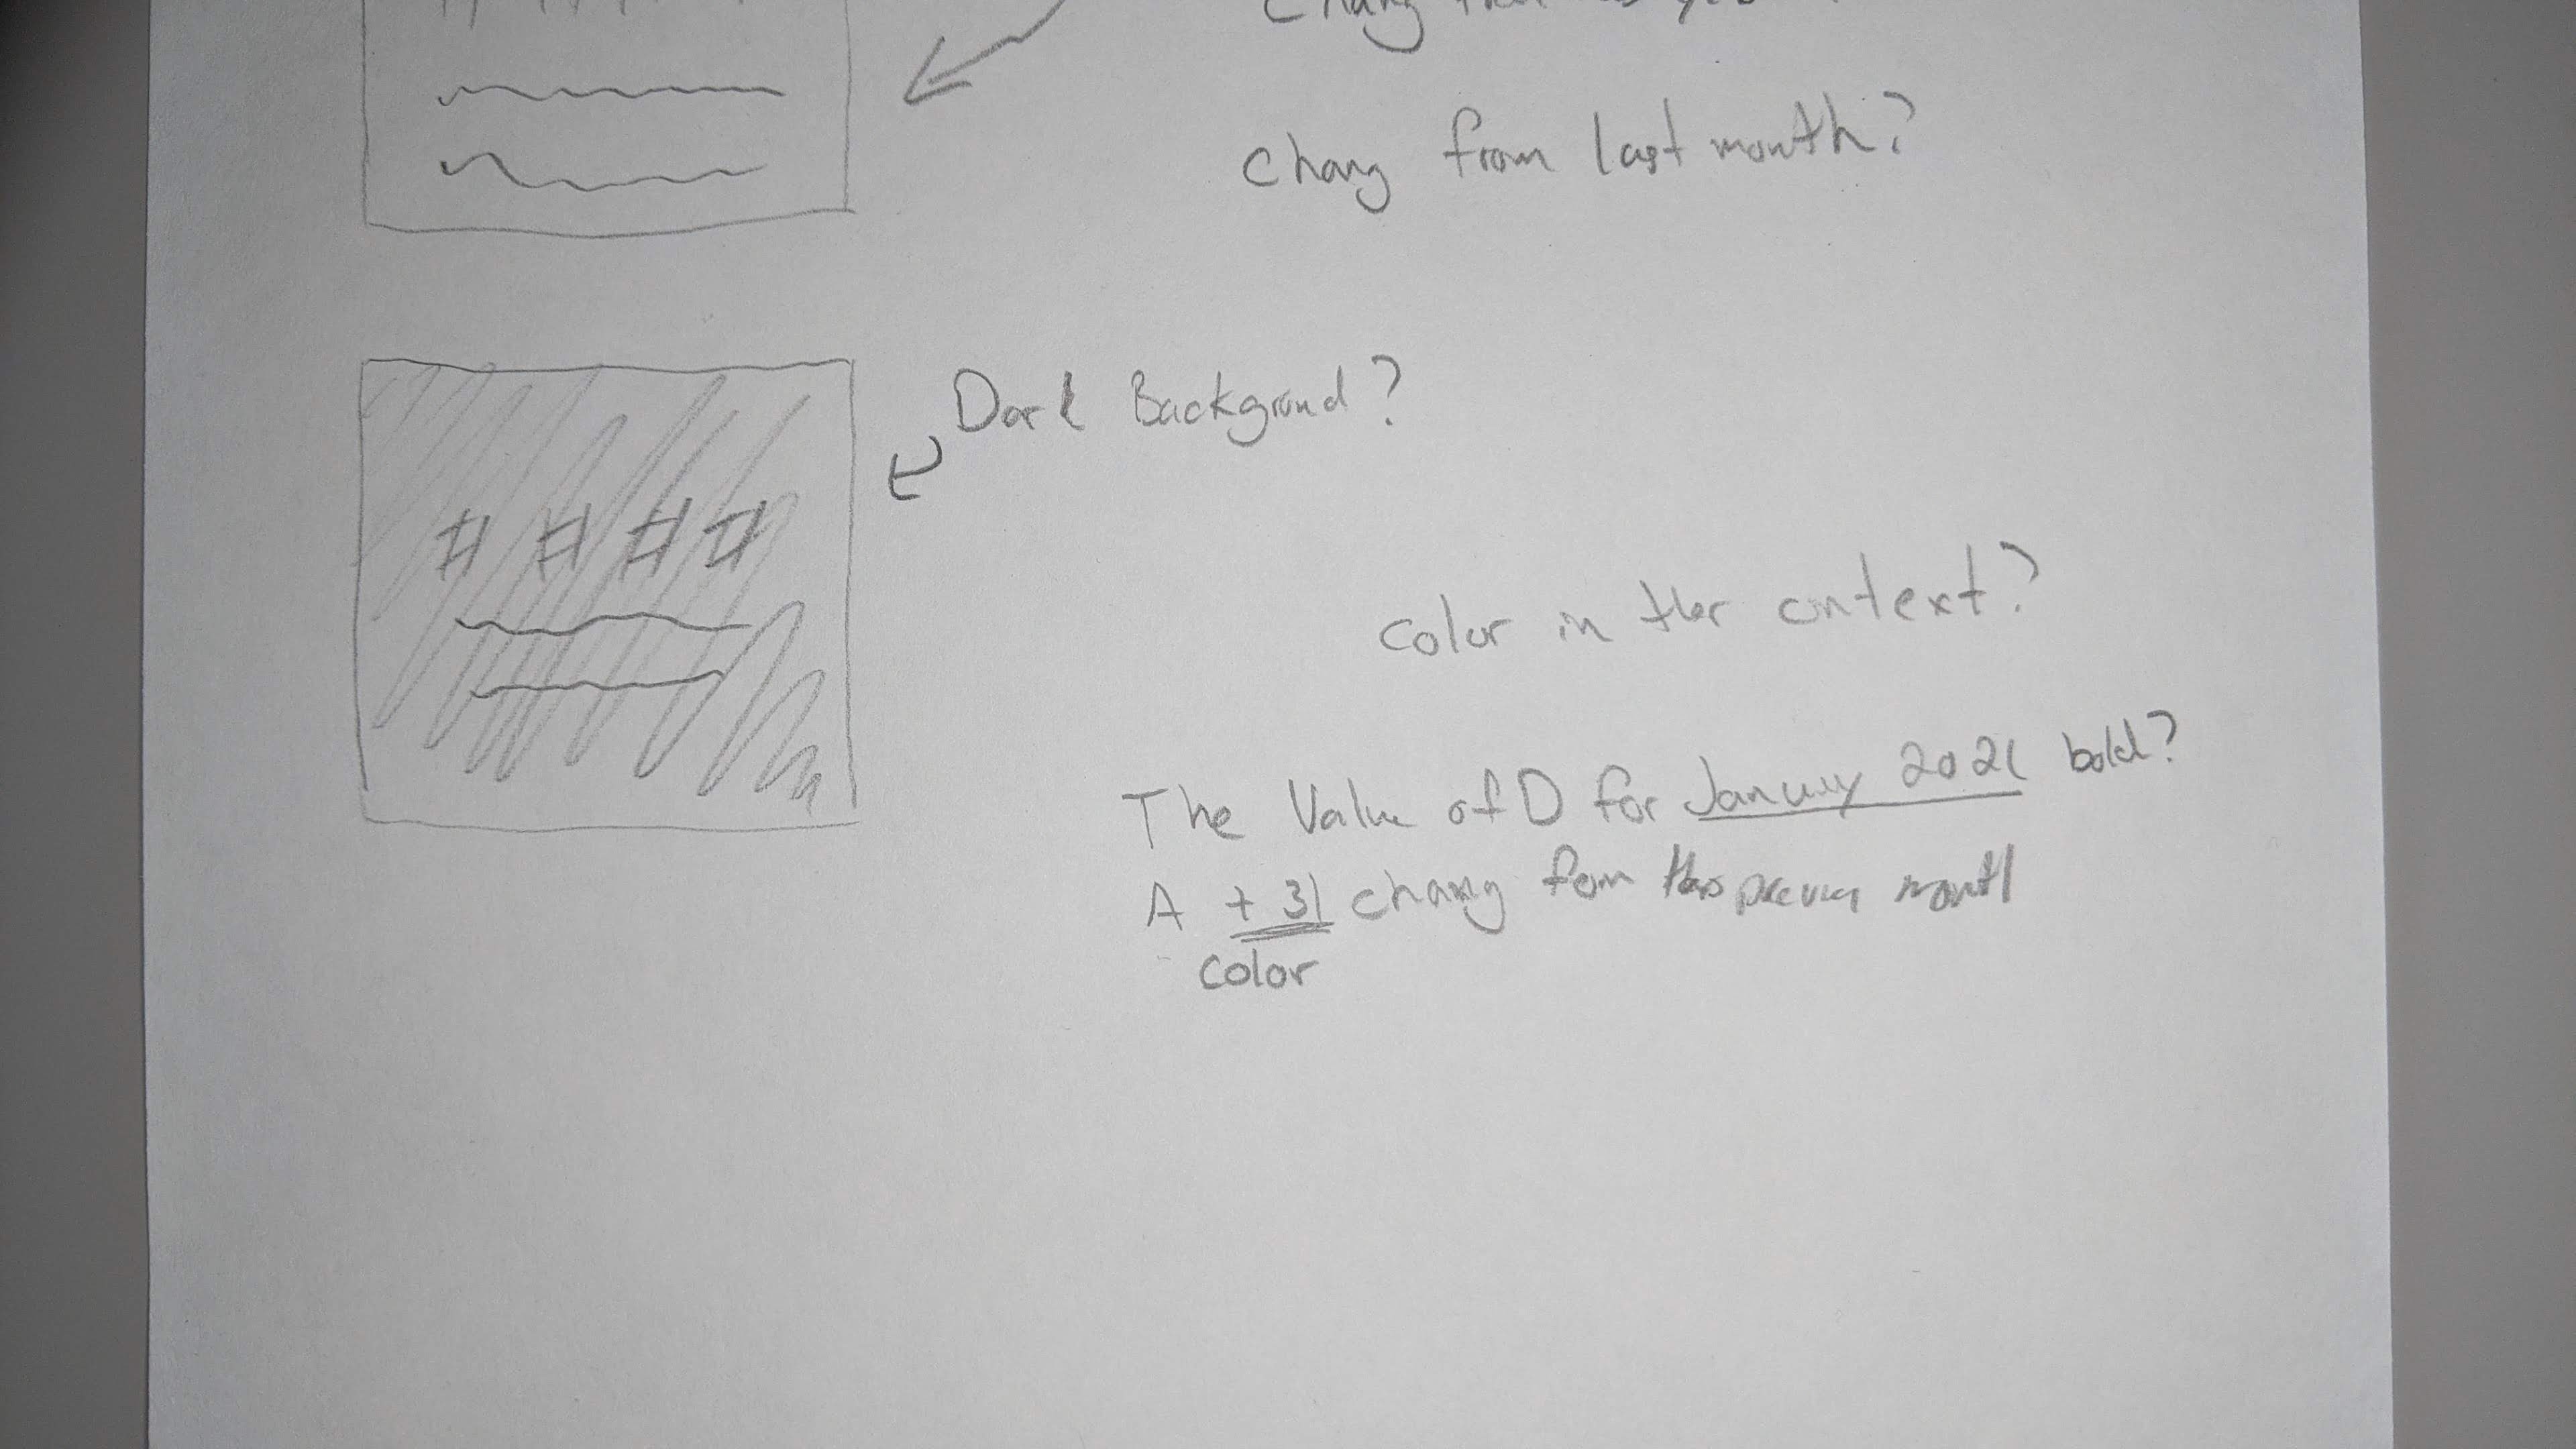 Chang from
Chang from last month?
Dark Background?
# # # #
Color in ther context?
The Value of D for January 2021 bold?
A + 31 chang from month
color